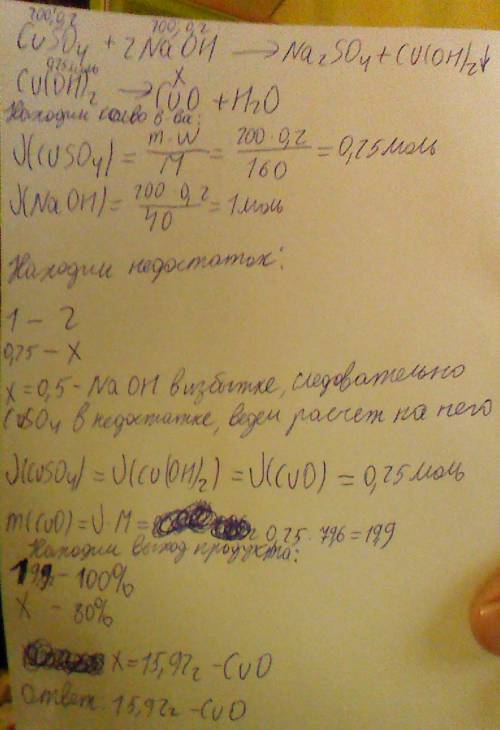 200; 0,2 200, 0,2
CuSO4 + 2NaOH → Na2SO4 + Cu(OH)2↓
0,25 моль x
Cu(OH)2 → CuO + H2O
Находим кол-во в-ва:
ν(CuSO4) = m·W/M = 200·0,2/160 = 0,25 моль
ν(NaOH) = 200·0,2/40 = 1 моль
Находим недостаток:
1 – 2
0,25 – x
x = 0,5 - NaOH в избытке, следовательно
CuSO4 в недостатке, ведем расчет на него
ν(CuSO4) = ν(Cu(OH)2) = ν(CuO) = 0,25 моль
m(CuO) = ν·M = 0,25·79,6 = 19,9
Находим выход продукта:
19,9 – 100%
x – 80%
x = 15,92г - CuO
Ответ: 15,92г - CuO